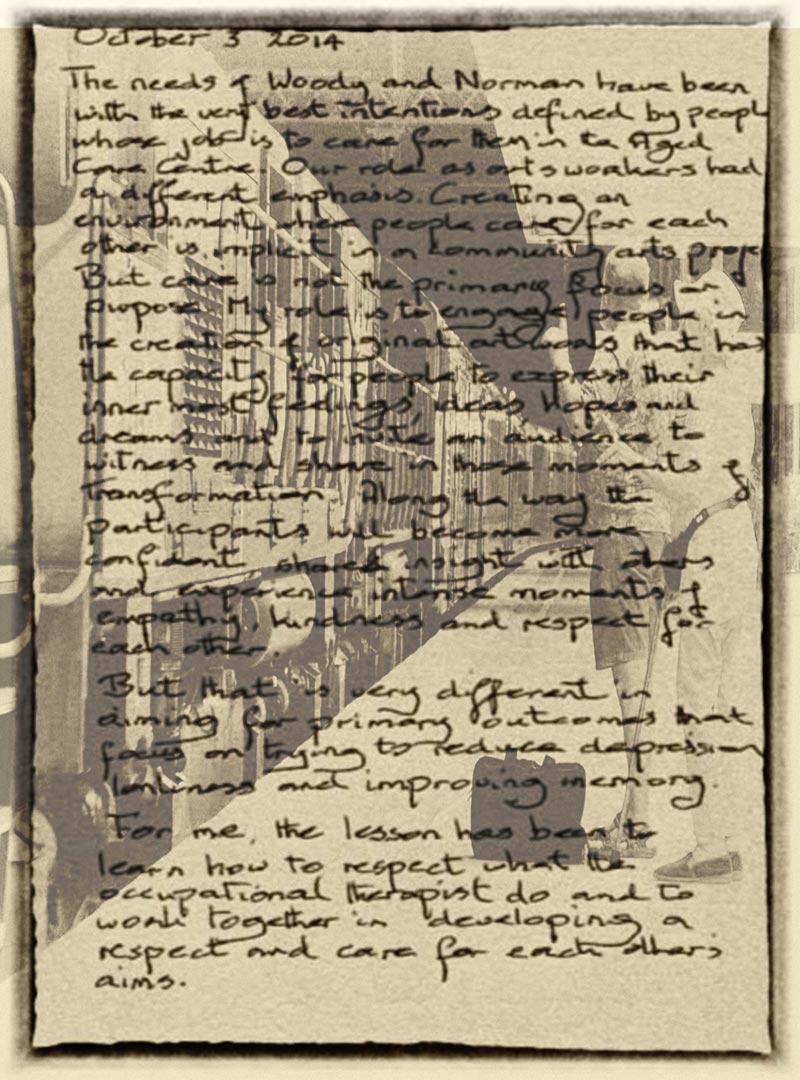 October 3 2014
The needs of Woody and Norman have been
with the very best intentions defined by people
whose job is to care for them in the Aged
Care Centre. Our role as arts workers had
a different emphasis. Creating an
environment where people care for each
other is implicit in a community arts projec
But care is not the primary focus or
purpose. My role is to engage people in
the creation of original artworks that has
the capacity for people to express their
inner most feelings, ideas, hopes and
dreams and to invite an audience to
witness and share in those moments of
transformation. Along the way the
participants will become more
confident shared insight with others
and experience intense moments of
empathy, kindness and respect for
each other.
But that is very different in
aiming for primary outcomes that
focus on trying to reduce depression
lonliness and improving memory.
For me, the lesson has been to
learn how to respect what the
occupational therapist do and to
work together in developing a
respect and care for each others
aims.